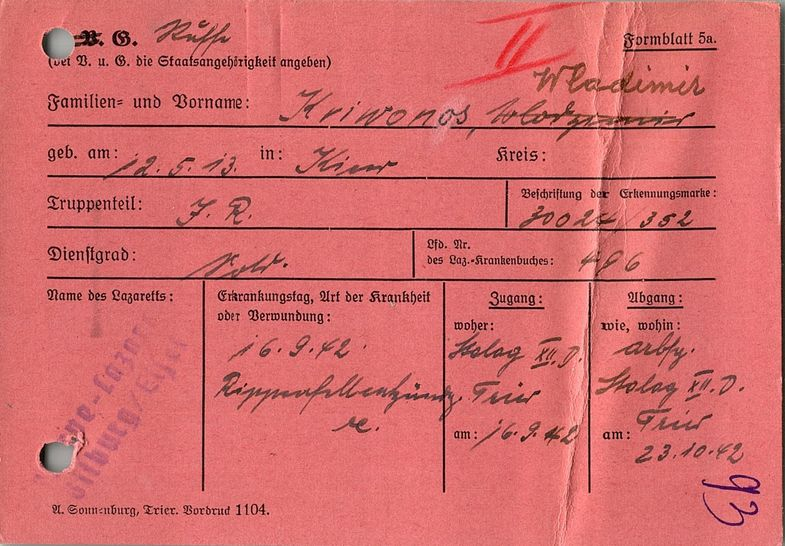 V. G. Russe
II
Formblatt 5a.
(bei V. u. G. die Staatsangehörigkeit angeben)
Wladimir
Familien- und Vorname: Kriwonos, Wlodzimier
geb. am: 12.5.13. in: Kiew Kreis:
Truppenteil: J. R.
Beschriftung der Erkennungsmarke:
30024/352
Dienstgrad: Sold.
Lfd. Nr.
des Laz.-Krankenbuches: 496
Name des Lazaretts:
Erkrankungstag, Art der Krankheit
oder Verwundung:
16.9.42.
Rippenfellentzündg.
re.
Zugang:
woher:
Stalag XII. D.
Trier
am: 16.9.42
Abgang:
wie, wohin:
arbfg.
Stalag XII. D.
Trier
am:
23.10.42
Bitburg/Eifel
93
A. Sonnenburg, Trier. Vordruck 1104.